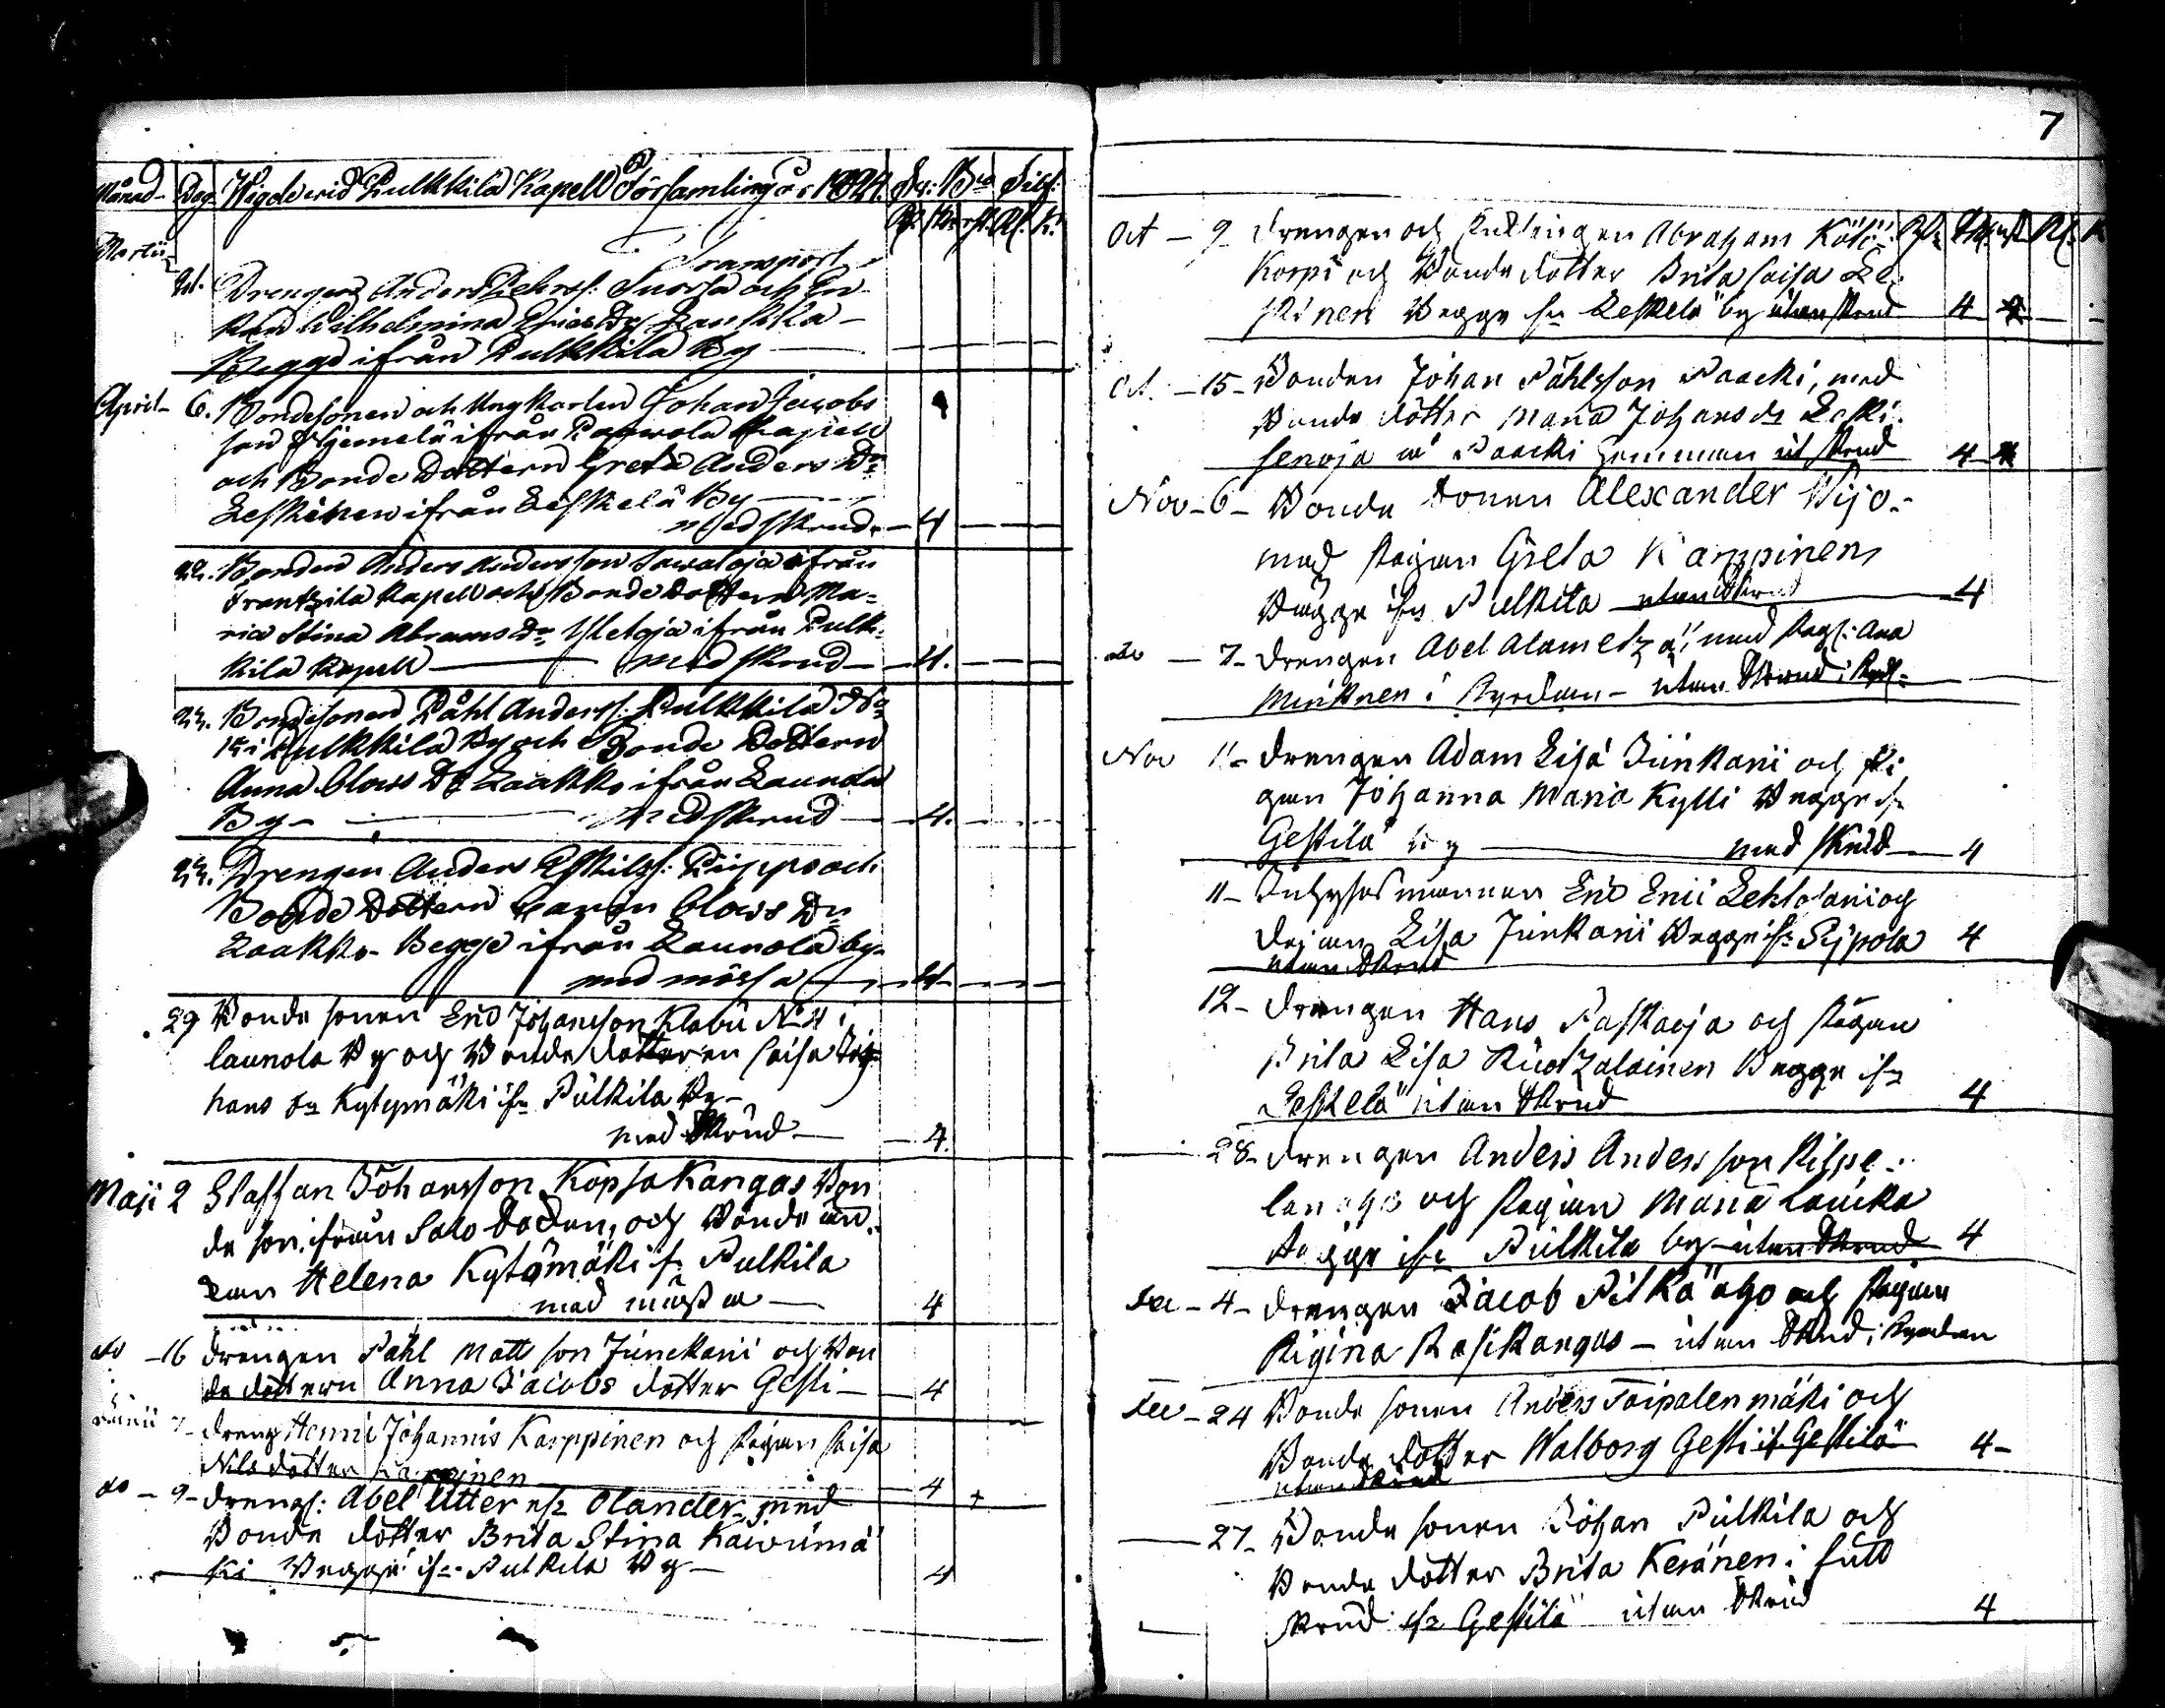 Månad Dag Wigde wid Pulkkila Kapell Församling År 1824. Sk: Bco Silf:
Martii
Transport
21. Drengen Anders Pehrss: Suorsa och En-
kan Wilhelmina Erics Dr
Begge ifrån Pulkkila By
April 6. Bondesonen och Ungkarlen Johan Jacobs
son Hjemelä ifrån Kapell
och Bonde Dottern Greta Anders Dr
Leskinen ifrån Leskelä By
med skrud. 4
22. Bonden Anders Andersson Sawaloja ifrån
Frantzila Kapell och Bonde Dottern Ma-
ria Stina Abrams Dr Yletoja ifrån Pulk-
kila Kapell med skrud 4.
22. Bondesonen Påhl Anderss: Pulkkila No
15 i Pulkkila By och Bonde Dottern
Anna Olows Dr Laakko ifrån Launola
By med skrud 4.
22. Drengen Anders Eskilss: Piippo och
Bonde Dottern Caren Olows Dr
Laakko Begge ifrån Launola by
med mössa 4
29 Bonde sonen Eric Johansson Klabu No 4 i
launola By och Bonde dotteren Caisa Jo
hans dr Kytymäki ifr Pulkila By
med skrud 4.
Maji 2 Staffan Johansson Kopsakangas Bon
de son ifrån Salo Socken, och Bonde
Helena Kytömäki fr Pulkila
med mössa 4
do 16 drengen Påhl Matt son Junckari och Bon
de dottern Anna Jacobs dotter Gesti 4
Junii 7 dreng Henric Johannis Karppinen och Pigan Caisa
Nils dotter Karppinen 4
do 9 drengs: Abel Utter Olander med
Bonde dotter Brita Stina Kaiwumä
ki Begge ifr Pulkila By 4
7
Oct 9 drengen och Abraham Kälä
Korpi och Bonde dotter Brita Caisa Le
skinen Begge ifr Leskelä by utan skrud 4
Oct. 15 Bonden Johan Påhlsson Paacki, med
Bonde dotter Maria Johans dr Leski
senoja å Paacki hemman ut skrud 4
Nov 6 Bonde sonen Alexander Pijo
med Pigan Greta Karppinen
Begge ifr Pulkila utan skrud 4
do 7 drengen Abel Alametzä med Pag: Ana
Minkinen i Kyrckan utan skrud i
Nov 11 drengen Adam Lisä Junkari och Pi
gan Johanna Maria Kylli Begge ifr
Gestilä by med skrud 4
11 Inhyses mannen Eric Erici Lehtosari och
Pigan Lisa Junkari Begge ifr Sijpola 4
utan skrud
12 drengen Hans Paskaoja och Pigan
Brita Lisa Ruotzalainen Begge ifr
Leskelä utan skrud 4
28 drengen Anders Andersson
och Pigan Maria Laucka
Begge ifr Pulkila by utan skrud 4
Dec 4 drengen Jacob Pitkä aho och Pigan
Rigina Rasikangas utan skrud i Kyrckan
Dec 24 Bonde sonen Anders Taipalenmäki och
Bonde dotter Walborg Gesti if Gestilä 4
utan skrud
27 Bonde sonen Johan Pulkila och
Bonde dotter Brita Keränen i full
skrud ifr Gestilä utan skrud 4